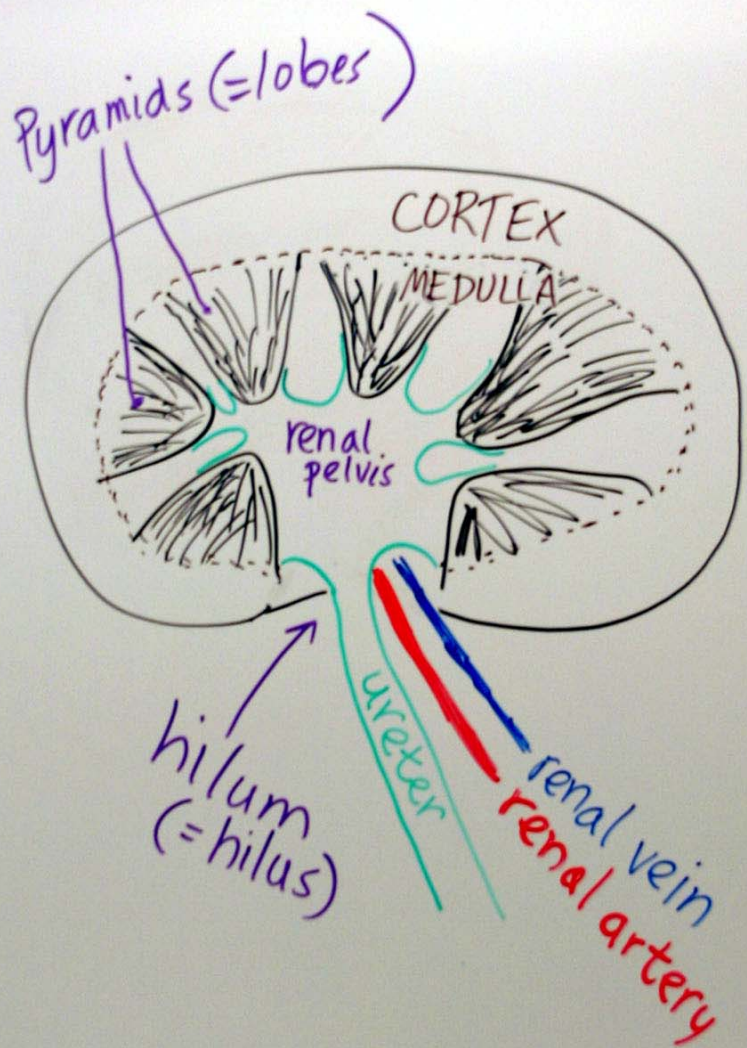 Pyramids (=lobes)
CORTEX
MEDULLA
renal
pelvis
hilum
(=hilus)
ureter
renal vein
renal artery